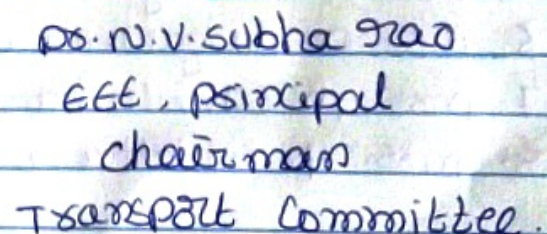 Dr. N. V. Subha Rao
EEE, Principal
Chairman
Transport Committee.